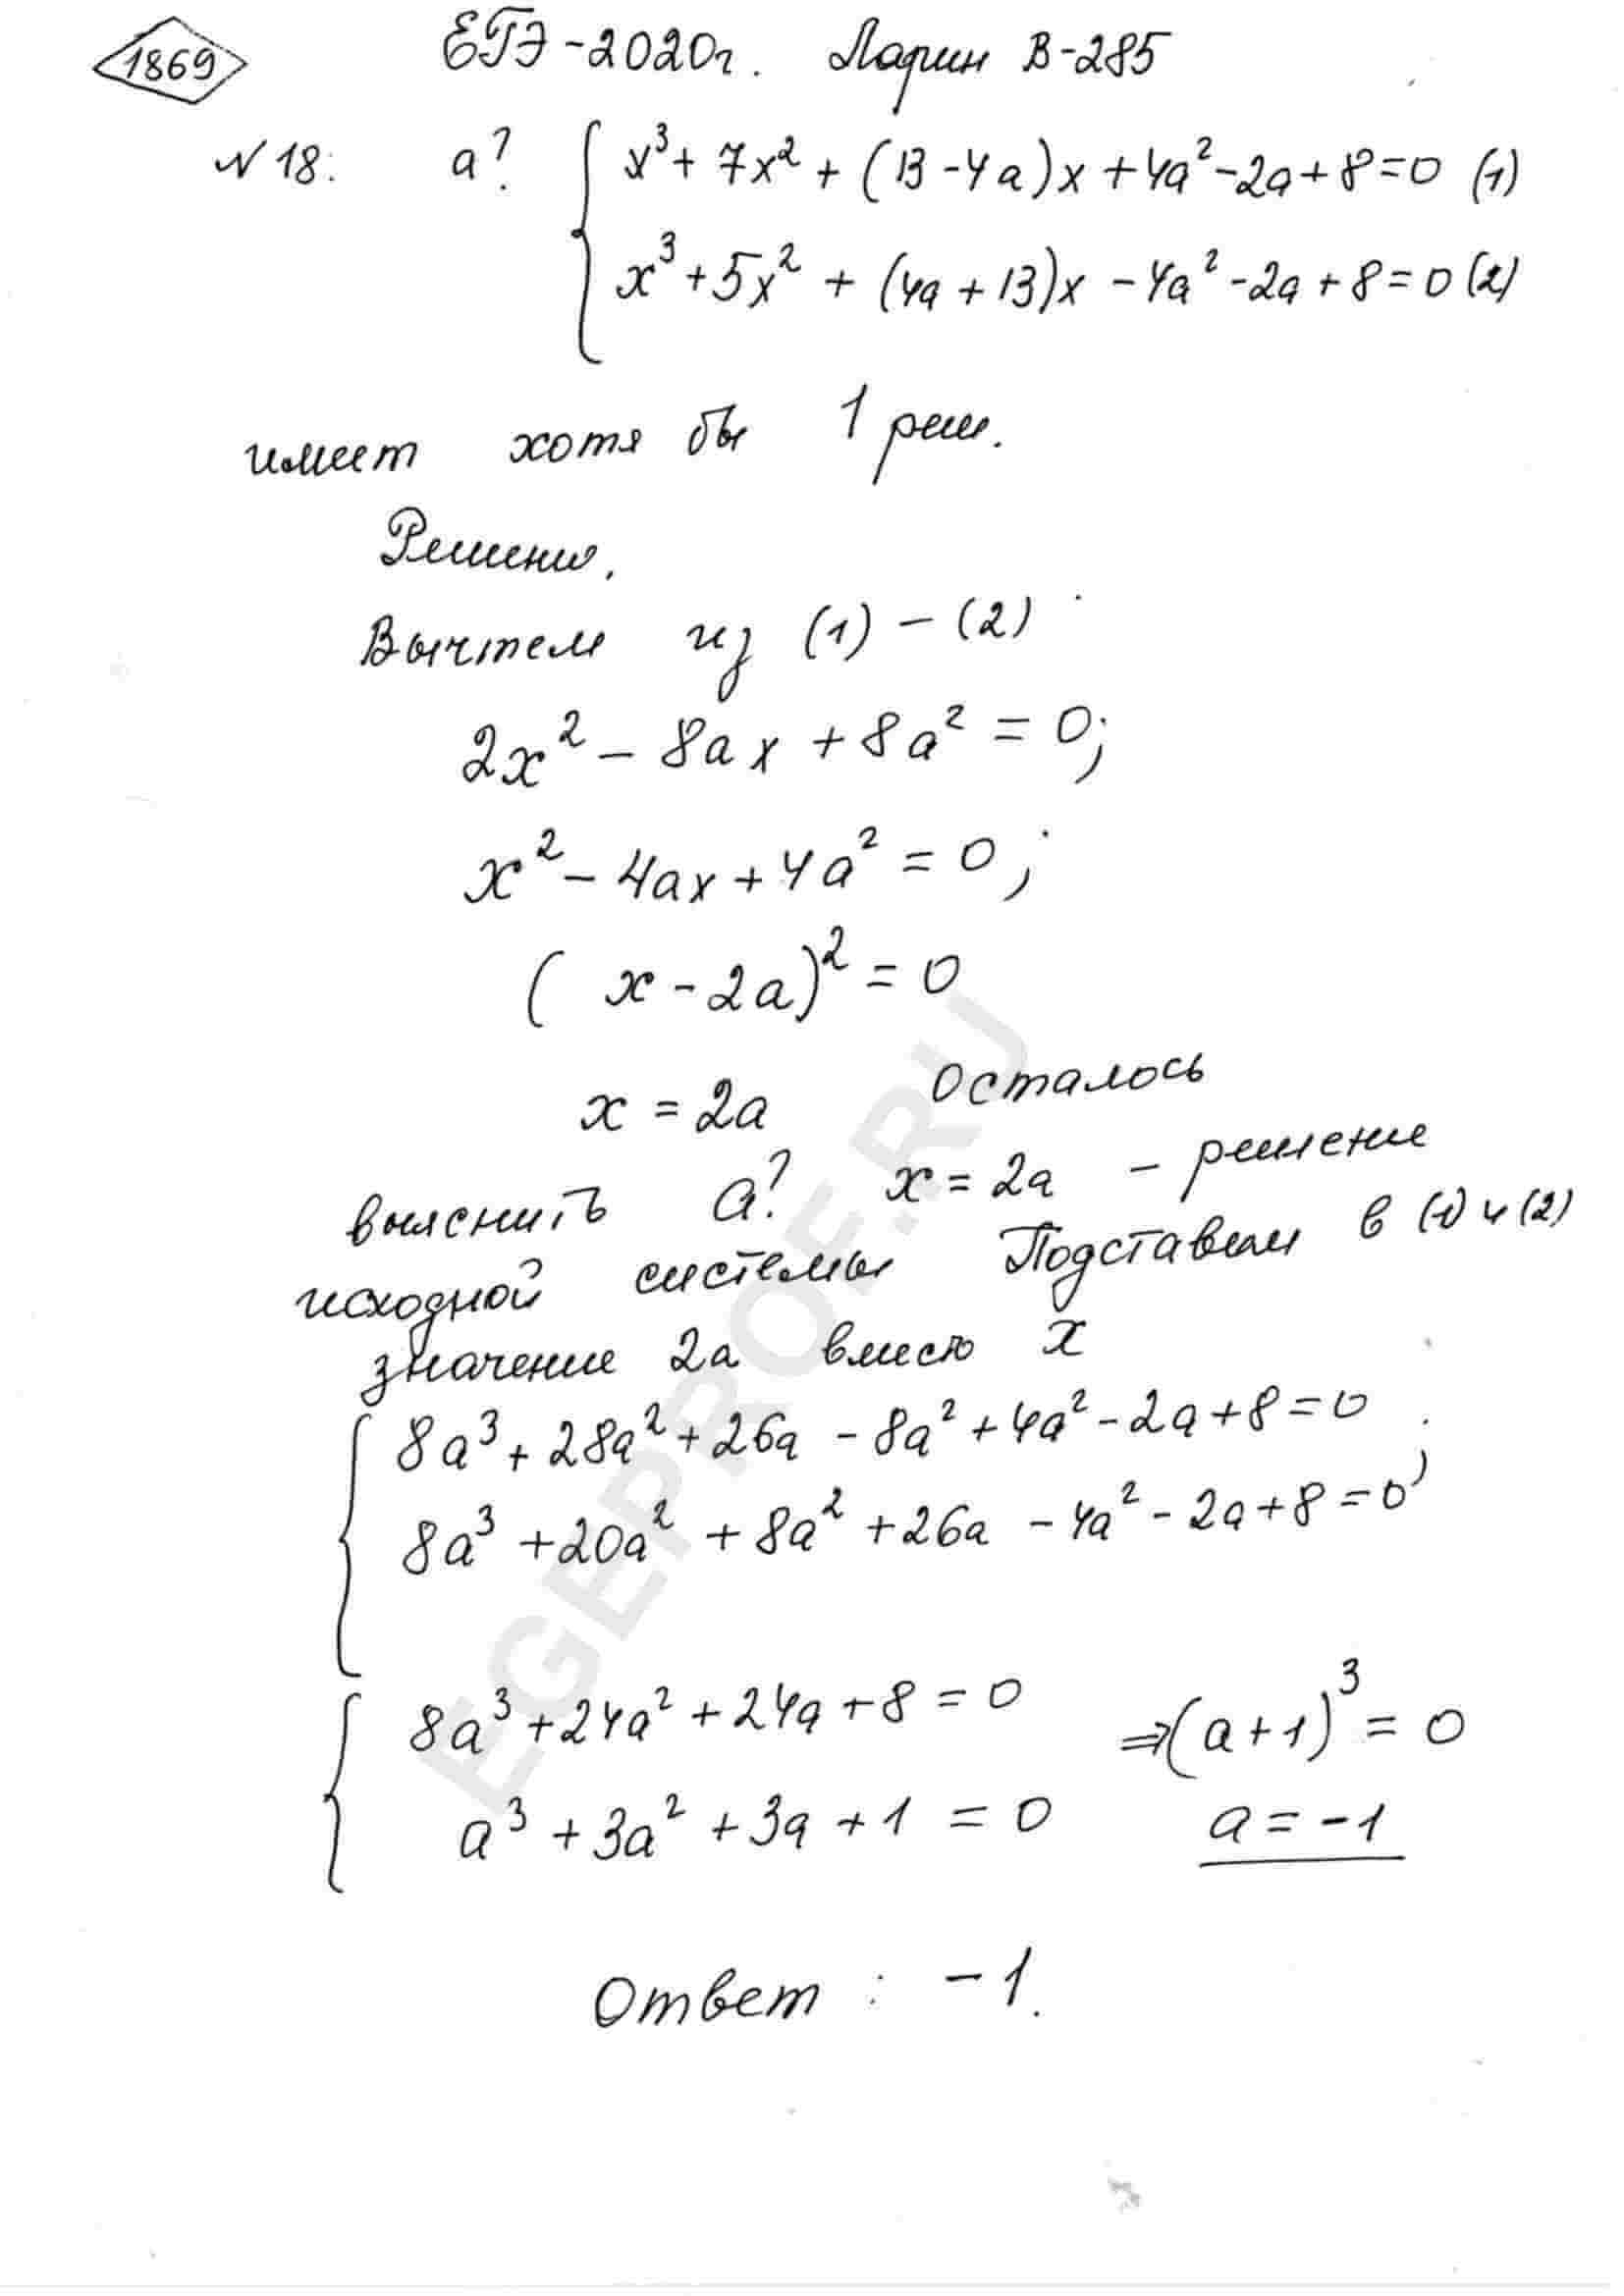 1869
ЕГЭ-2020г. Ларин В-285
N18: a? { x³ + 7x² + (13 - 4a)x + 4a² - 2a + 8 = 0 (1)
x³ + 5x² + (4a + 13)x - 4a² - 2a + 8 = 0 (2)
имеет хотя бы 1 реш.
Решение.
Вычтем из (1) - (2)
2x² - 8ax + 8a² = 0;
x² - 4ax + 4a² = 0;
(x - 2a)² = 0
x = 2a Осталось
выяснить a? x = 2a - решение
исходной системы Подставим в (1) и (2)
значение 2a вместо x
{ 8a³ + 28a² + 26a - 8a² + 4a² - 2a + 8 = 0
8a³ + 20a² + 8a² + 26a - 4a² - 2a + 8 = 0;
{ 8a³ + 24a² + 24a + 8 = 0 ⇒ (a + 1)³ = 0
a³ + 3a² + 3a + 1 = 0 a = -1
Ответ: -1.
EGEPROF.RU